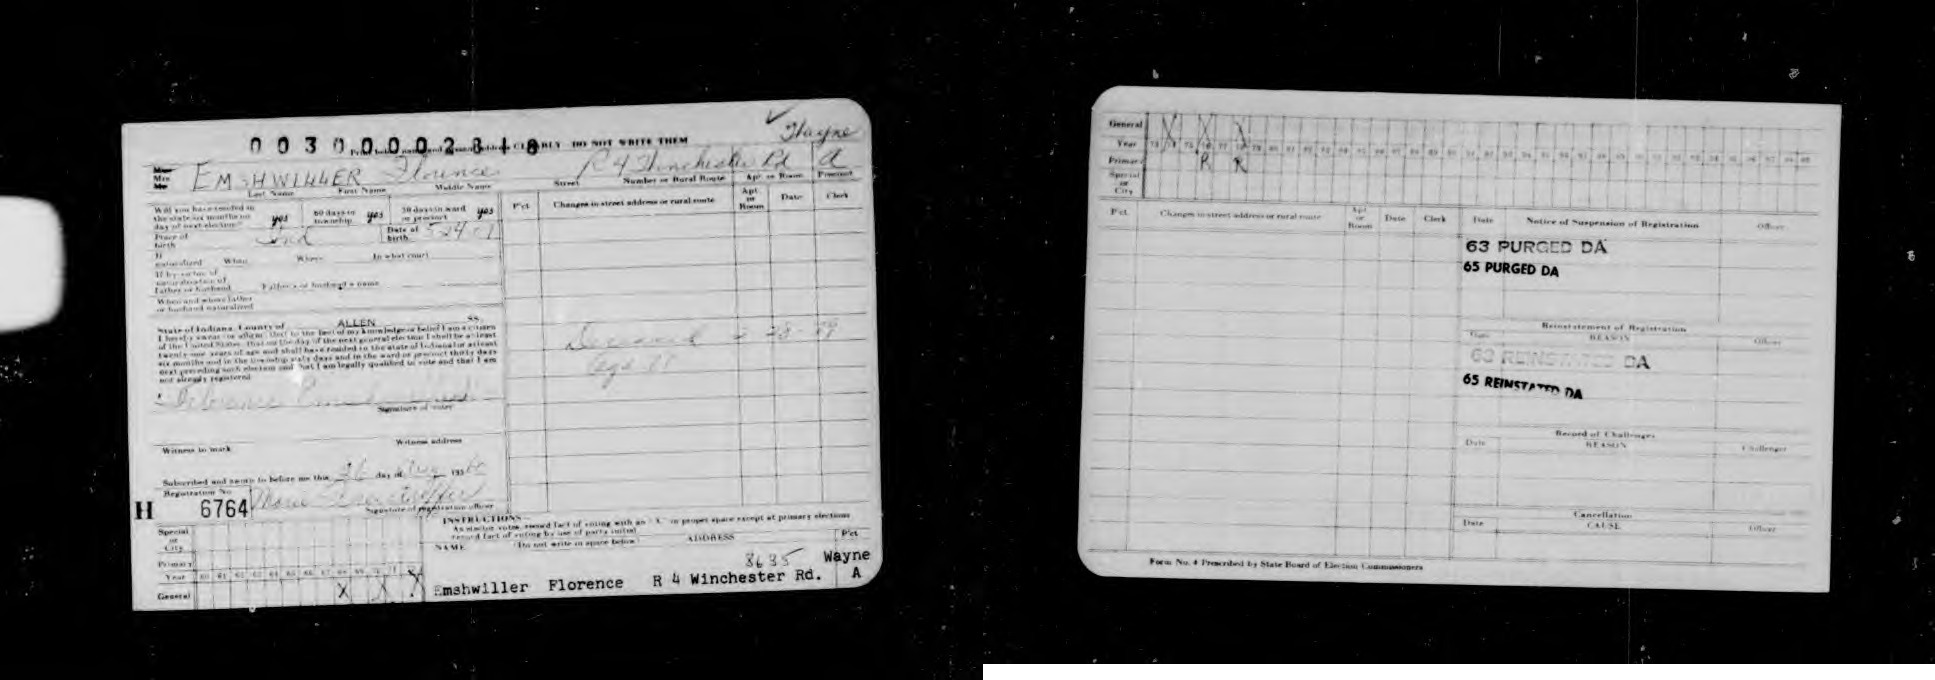 00300002818 CLEARLY DO NOT WRITE THEM
Wayne
EMSHWILLER Florence R 4 Winchester Rd A
Last Name First Name Middle Name Street Number or Rural Route Apt. or Room Precinct
Will you have resided in the state six months on day of next election? yes 60 days in township yes 30 days in ward or precinct yes
Place of birth Ind Date of birth 5-24-07
If naturalized When Where In what court
If by virtue of naturalization of Father or husband Father's or husband's name
When and where father or husband naturalized
P'ct. Changes in street address or rural route Apt. or Room Date Clerk
State of Indiana, County of ALLEN SS.
I hereby swear or affirm that to the best of my knowledge or belief I am a citizen
of the United States. That on the day of the next general election I shall be at least
twenty-one years of age and shall have resided in the state of Indiana for at least
six months and in the township sixty days and in the ward or precinct thirty days
next preceding such election and that I am legally qualified to vote and that I am
not already registered.
Deceased
Age
Florence
Signature of voter
Witness to mark Witness address
Subscribed and sworn to before me this 26 day of Aug 1960
Registration No.
H 6764 Marie
Signature of registration officer
INSTRUCTIONS
As elector votes, record fact of voting with an "X" in proper space except at primary elections
record fact of voting by use of party initial
NAME (Do not write in space below) ADDRESS P'ct.
Special or City
Primary
Year 60 61 62 63 64 65 66 67 68 69 70 71
General X X X
8635 Wayne
Emshwiller Florence R 4 Winchester Rd. A
General X X X
Year 73 74 75 76 77 78 79 80 81 82 83 84 85 86 87 88 89 90 91 92 93 94 95 96 97 98
Primary R R
Special or City
P'ct. Changes in street address or rural route Apt. or Room Date Clerk Date Notice of Suspension of Registration Officer
63 PURGED DA
65 PURGED DA
Reinstatement of Registration
Date REASON Officer
63 REINSTATED DA
65 REINSTATED DA
Record of Challenges
Date REASON Challenger
Cancellation
Date CAUSE Officer
Form No. 4 Prescribed by State Board of Election Commissioners